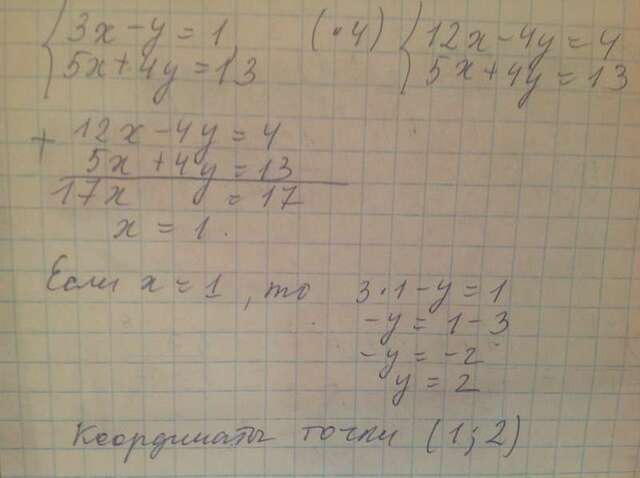 { 3x - y = 1 (·4) { 12x - 4y = 4
{ 5x + 4y = 13 { 5x + 4y = 13
+ 12x - 4y = 4
5x + 4y = 13
17x = 17
x = 1.
Если x = 1, то 3·1 - y = 1
-y = 1 - 3
-y = -2
y = 2
Координаты точки (1; 2)